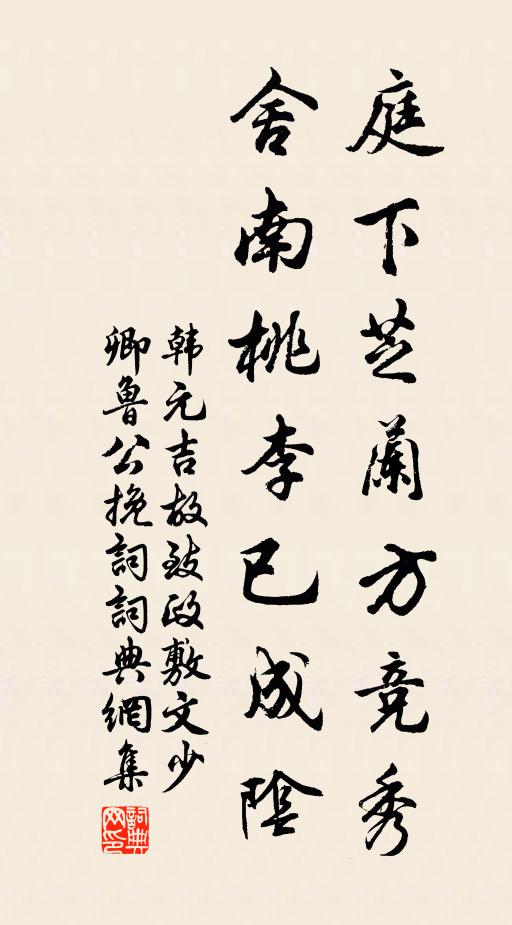 庭下芝蘭方竞秀
舍南桃李已成陰
韩元吉故致政敷文少
卿鲁公挽詞詞典網集
詞典
网印